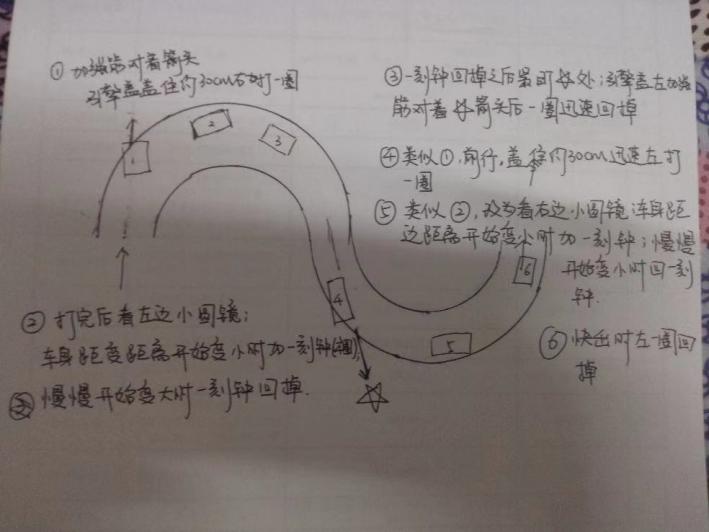 ① 加强筋对着箭头
引擎盖盖住约30cm右打一圈
③一刻钟回掉之后最可 处;引擎盖左加强
筋对着 箭头后一圈迅速回掉
④类似①,前行,盖住约30cm迅速左打
一圈
⑤ 类似②,改为看右边小圆镜;车身距
边距离开始变小时加一刻钟;慢慢
开始变小时回一刻
钟.
⑥ 快出时左一圈回
掉
② 打完后看左边小圆镜;
车身距变距离开始变小时加一刻钟
慢慢开始变大时一刻钟回掉.
1
2
3
4
5
6